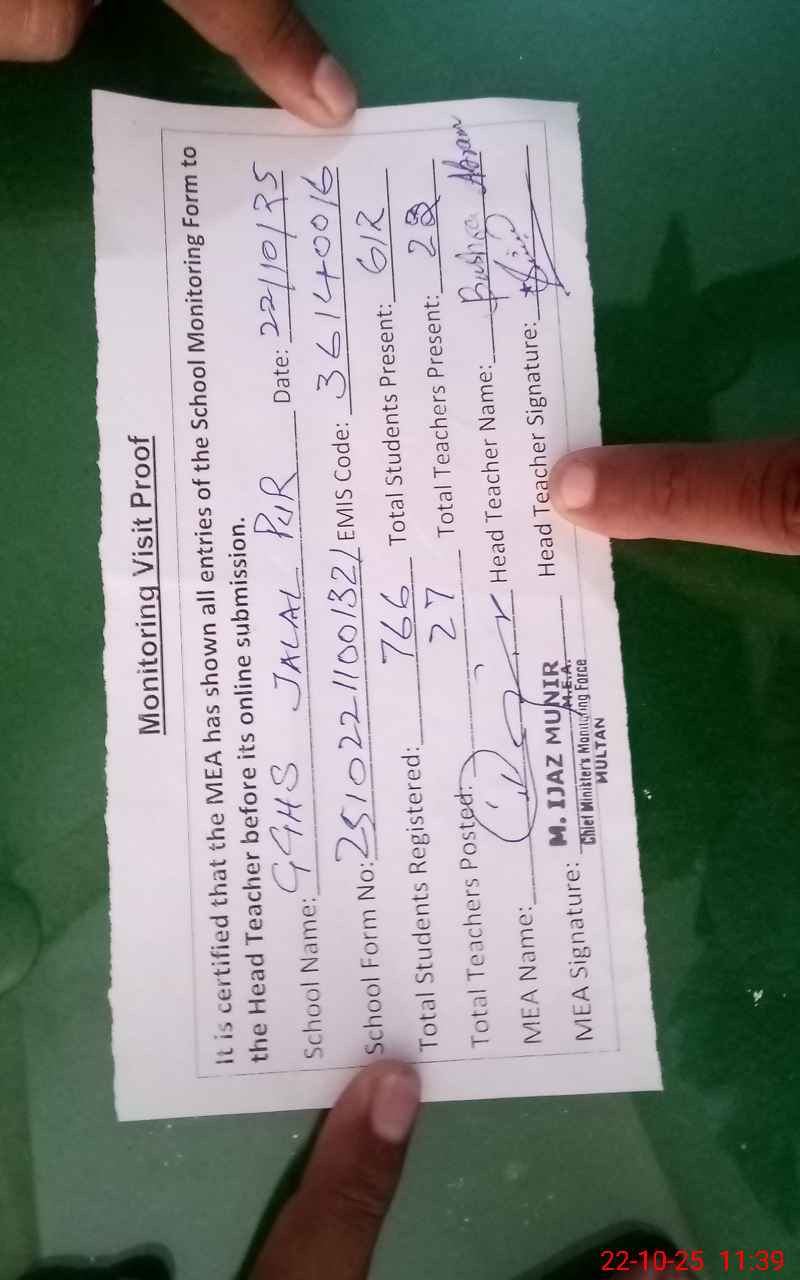 Monitoring Visit Proof
It is certified that the MEA has shown all entries of the School Monitoring Form to
the Head Teacher before its online submission.
School Name: GGHS JALAL PUR Date: 22/10/25
School Form No: 2510221100132 EMIS Code: 36140016
Total Students Registered: 766 Total Students Present: 612
Total Teachers Posted: 27 Total Teachers Present: 22
MEA Name: Head Teacher Name: Bushra Akram
M. IJAZ MUNIR
M.E.A.
MEA Signature: Head Teacher Signature:
Chief Minister's Monitoring Force
MULTAN
22-10-25 11:39